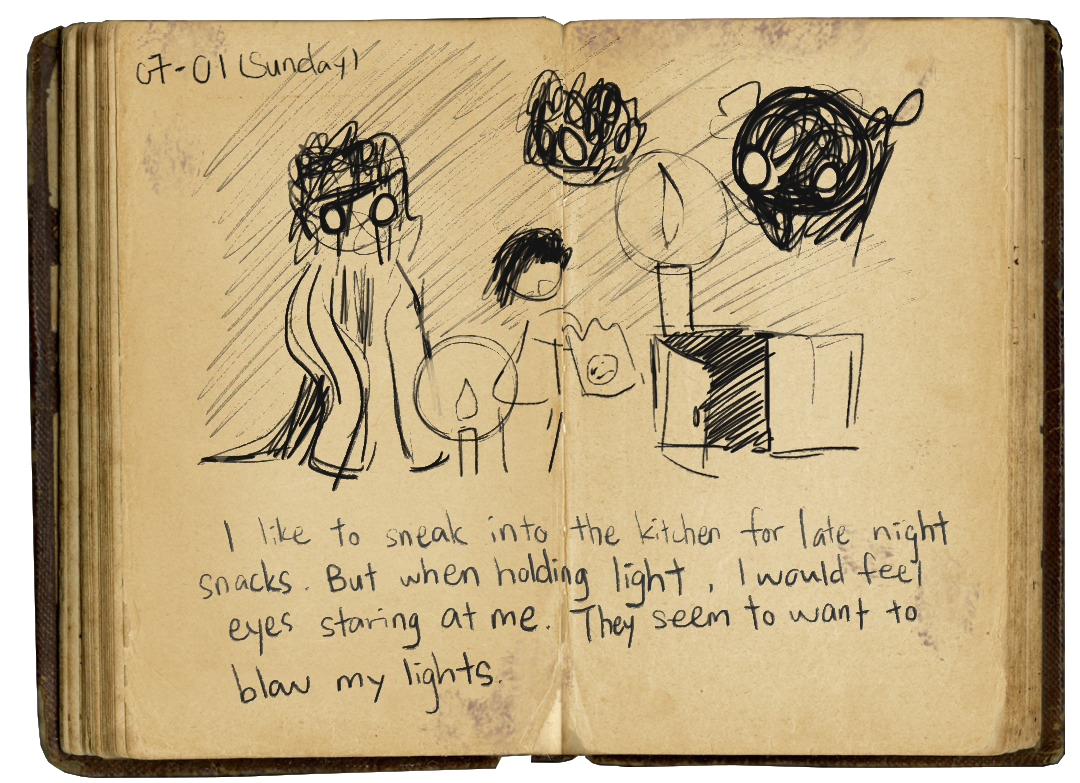 07-01 (Sunday)
I like to sneak into the kitchen for late night
snacks. But when holding light, I would feel
eyes staring at me. They seem to want to
blow my lights.